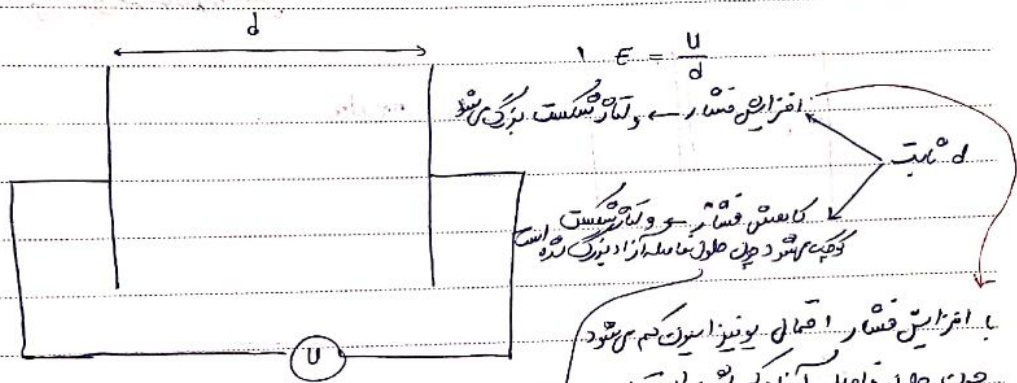 d
۱ E = U/d
افزایش فشار ← ولتاژ شکست بزرگ می‌شود
d ثابت
کاهش فشار ← ولتاژ شکست
کوچک می‌شود چون طول فاصله آزاد بزرگ شده است
با افزایش فشار احتمال یونیزاسیون کم می‌شود
U